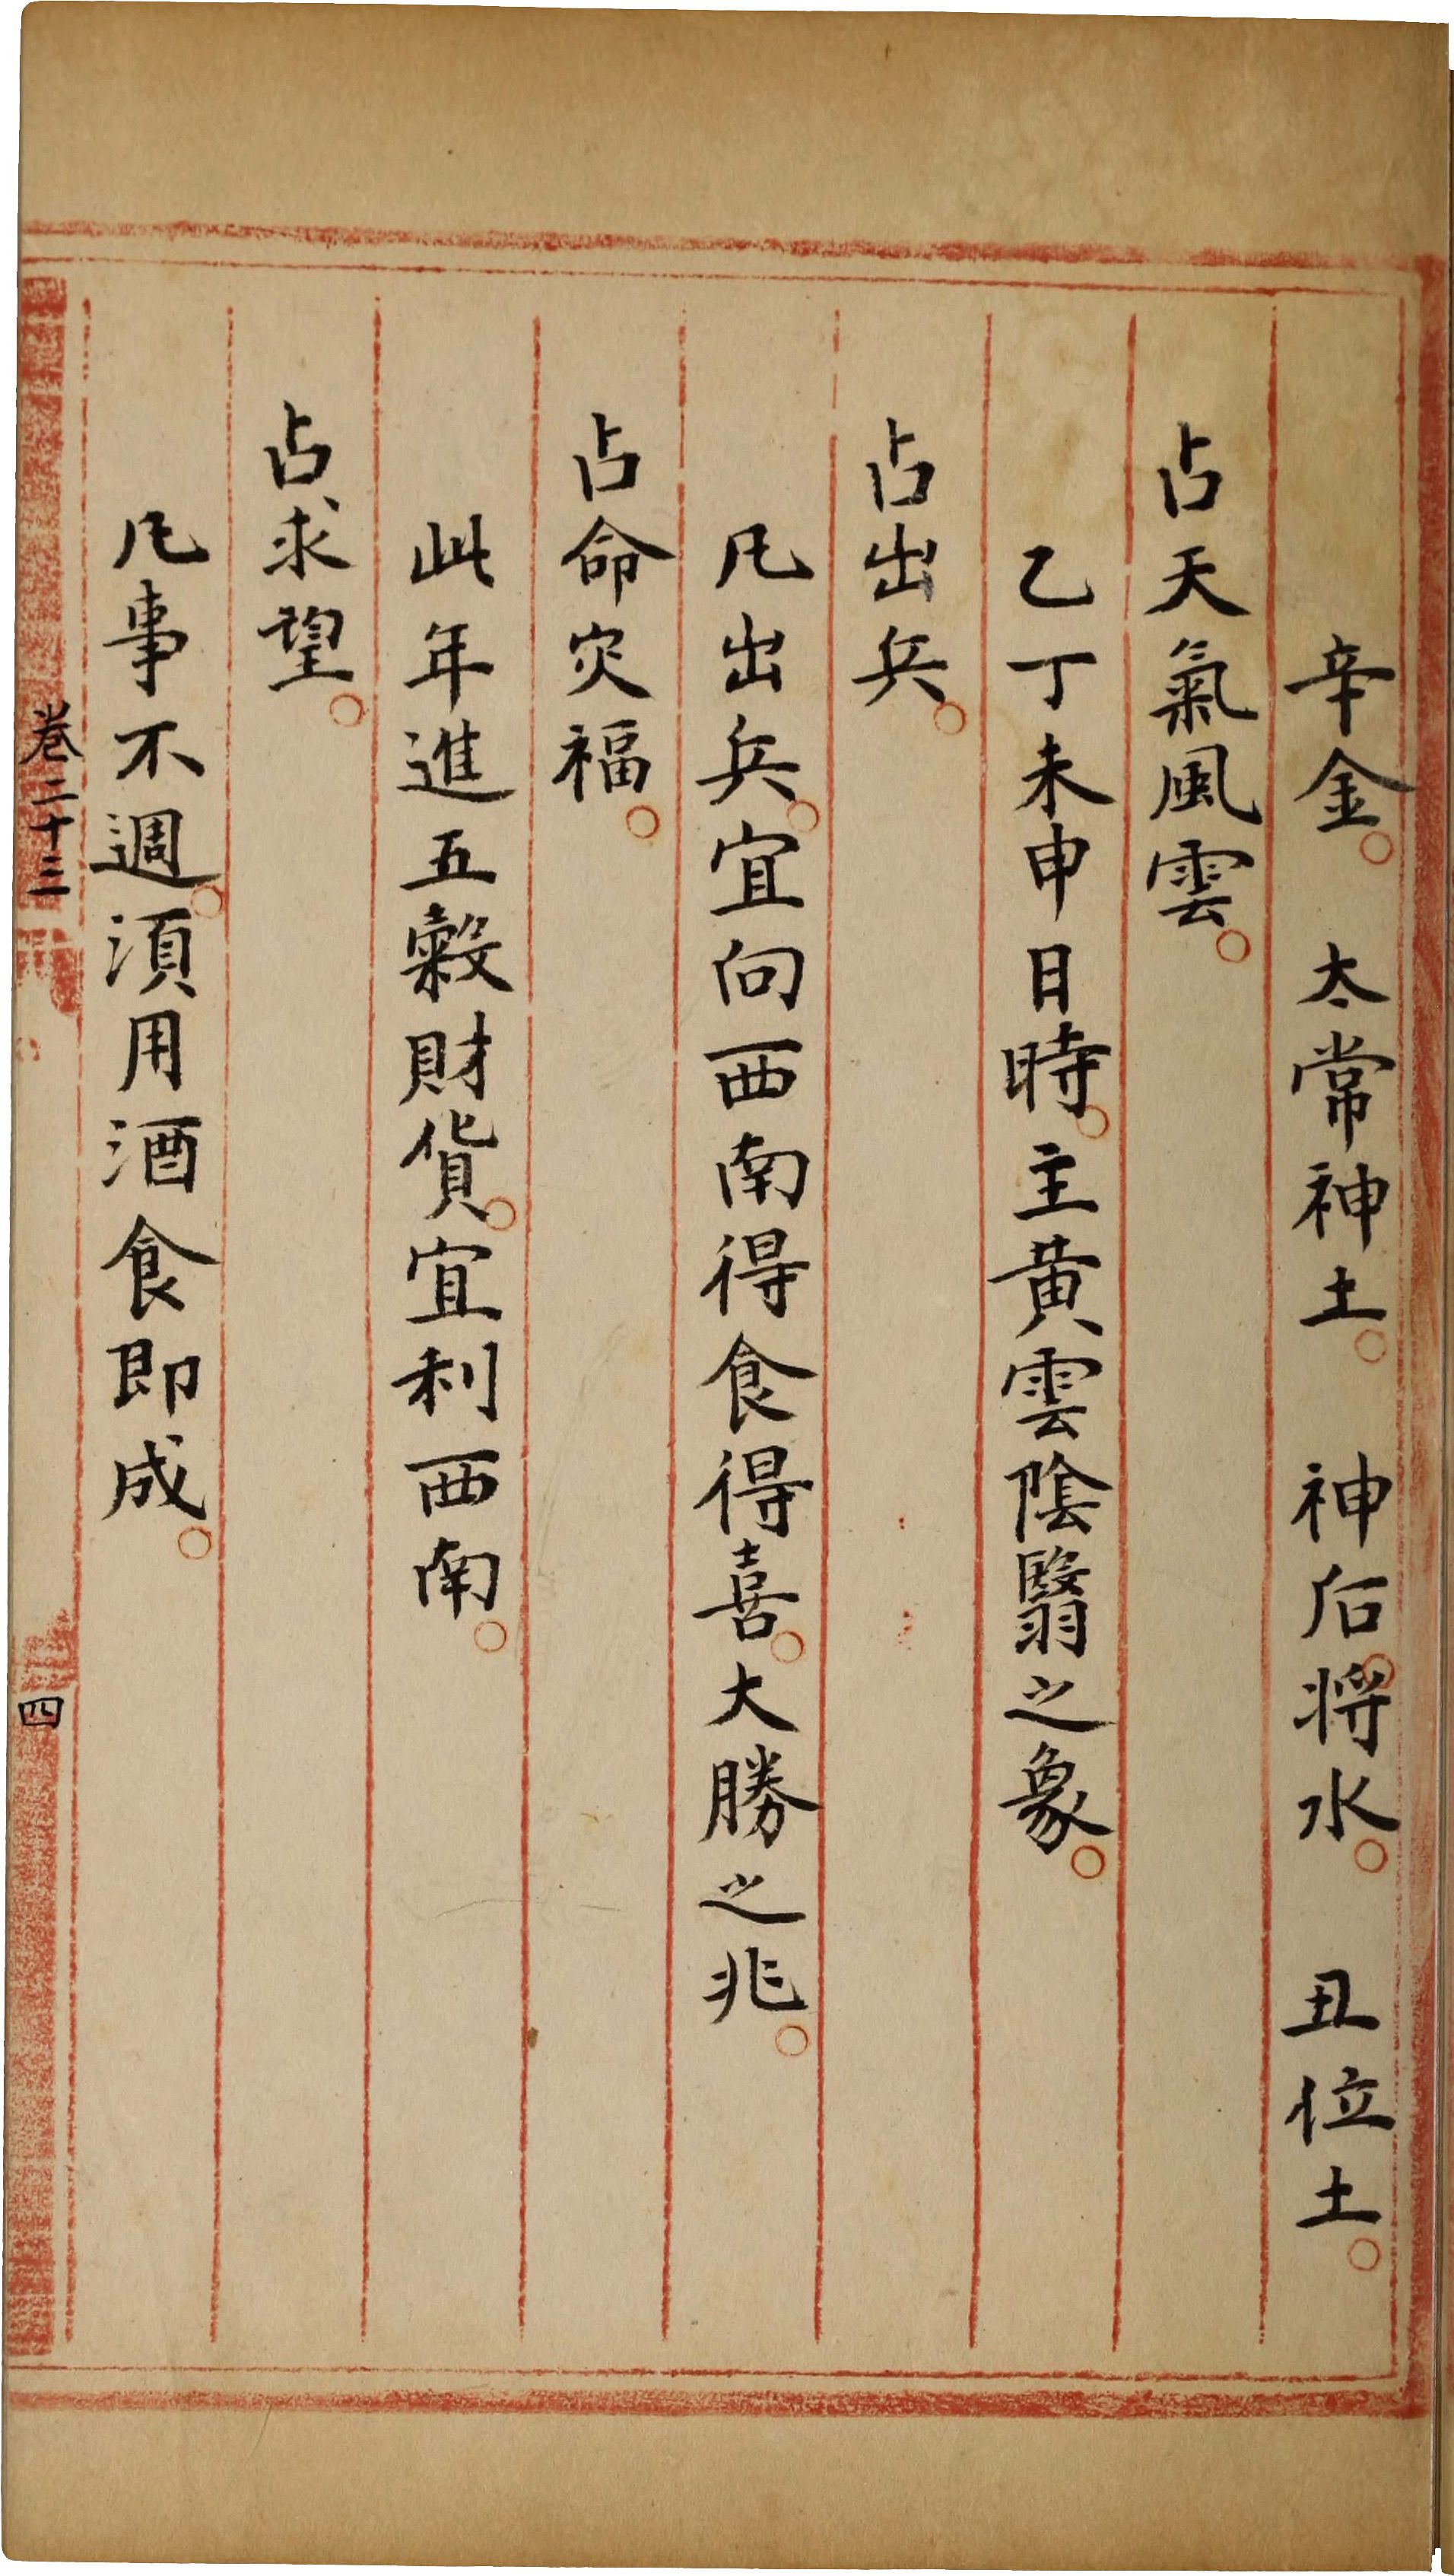 辛金。 太常神土。 神后。將水。 丑位土。
占天氣風雲。
乙丁未申日時。主黄雲陰翳之象。
占出兵。
凡出兵。宜向西南得食得喜。大勝之兆。
占命灾福。
此年進五穀財貨。宜利西南。
占求望。
凡事不週。須用酒食即成。
卷二十三
四